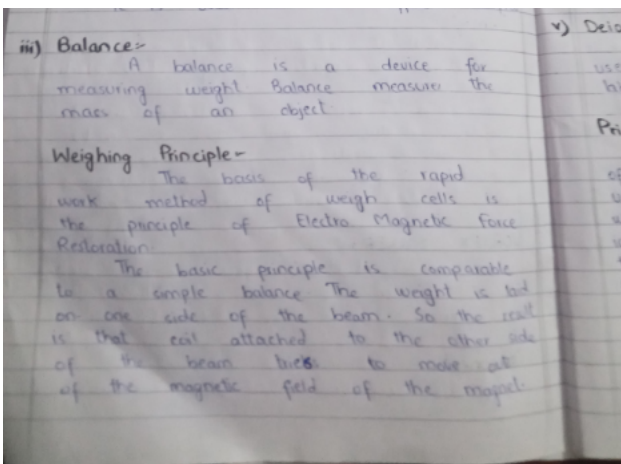 iii) Balance:-
A balance is a device for
measuring weight Balance measures the
mass of an object.
Weighing Principle-
The basis of the rapid
work method of weigh cells is
the principle of Electro Magnetic Force
Restoration.
The basic principle is comparable
to a simple balance The weight is laid
on one side of the beam. So the result
is that coil attached to the other side
of the beam tries to move out
of the magnetic field of the magnet.
v)